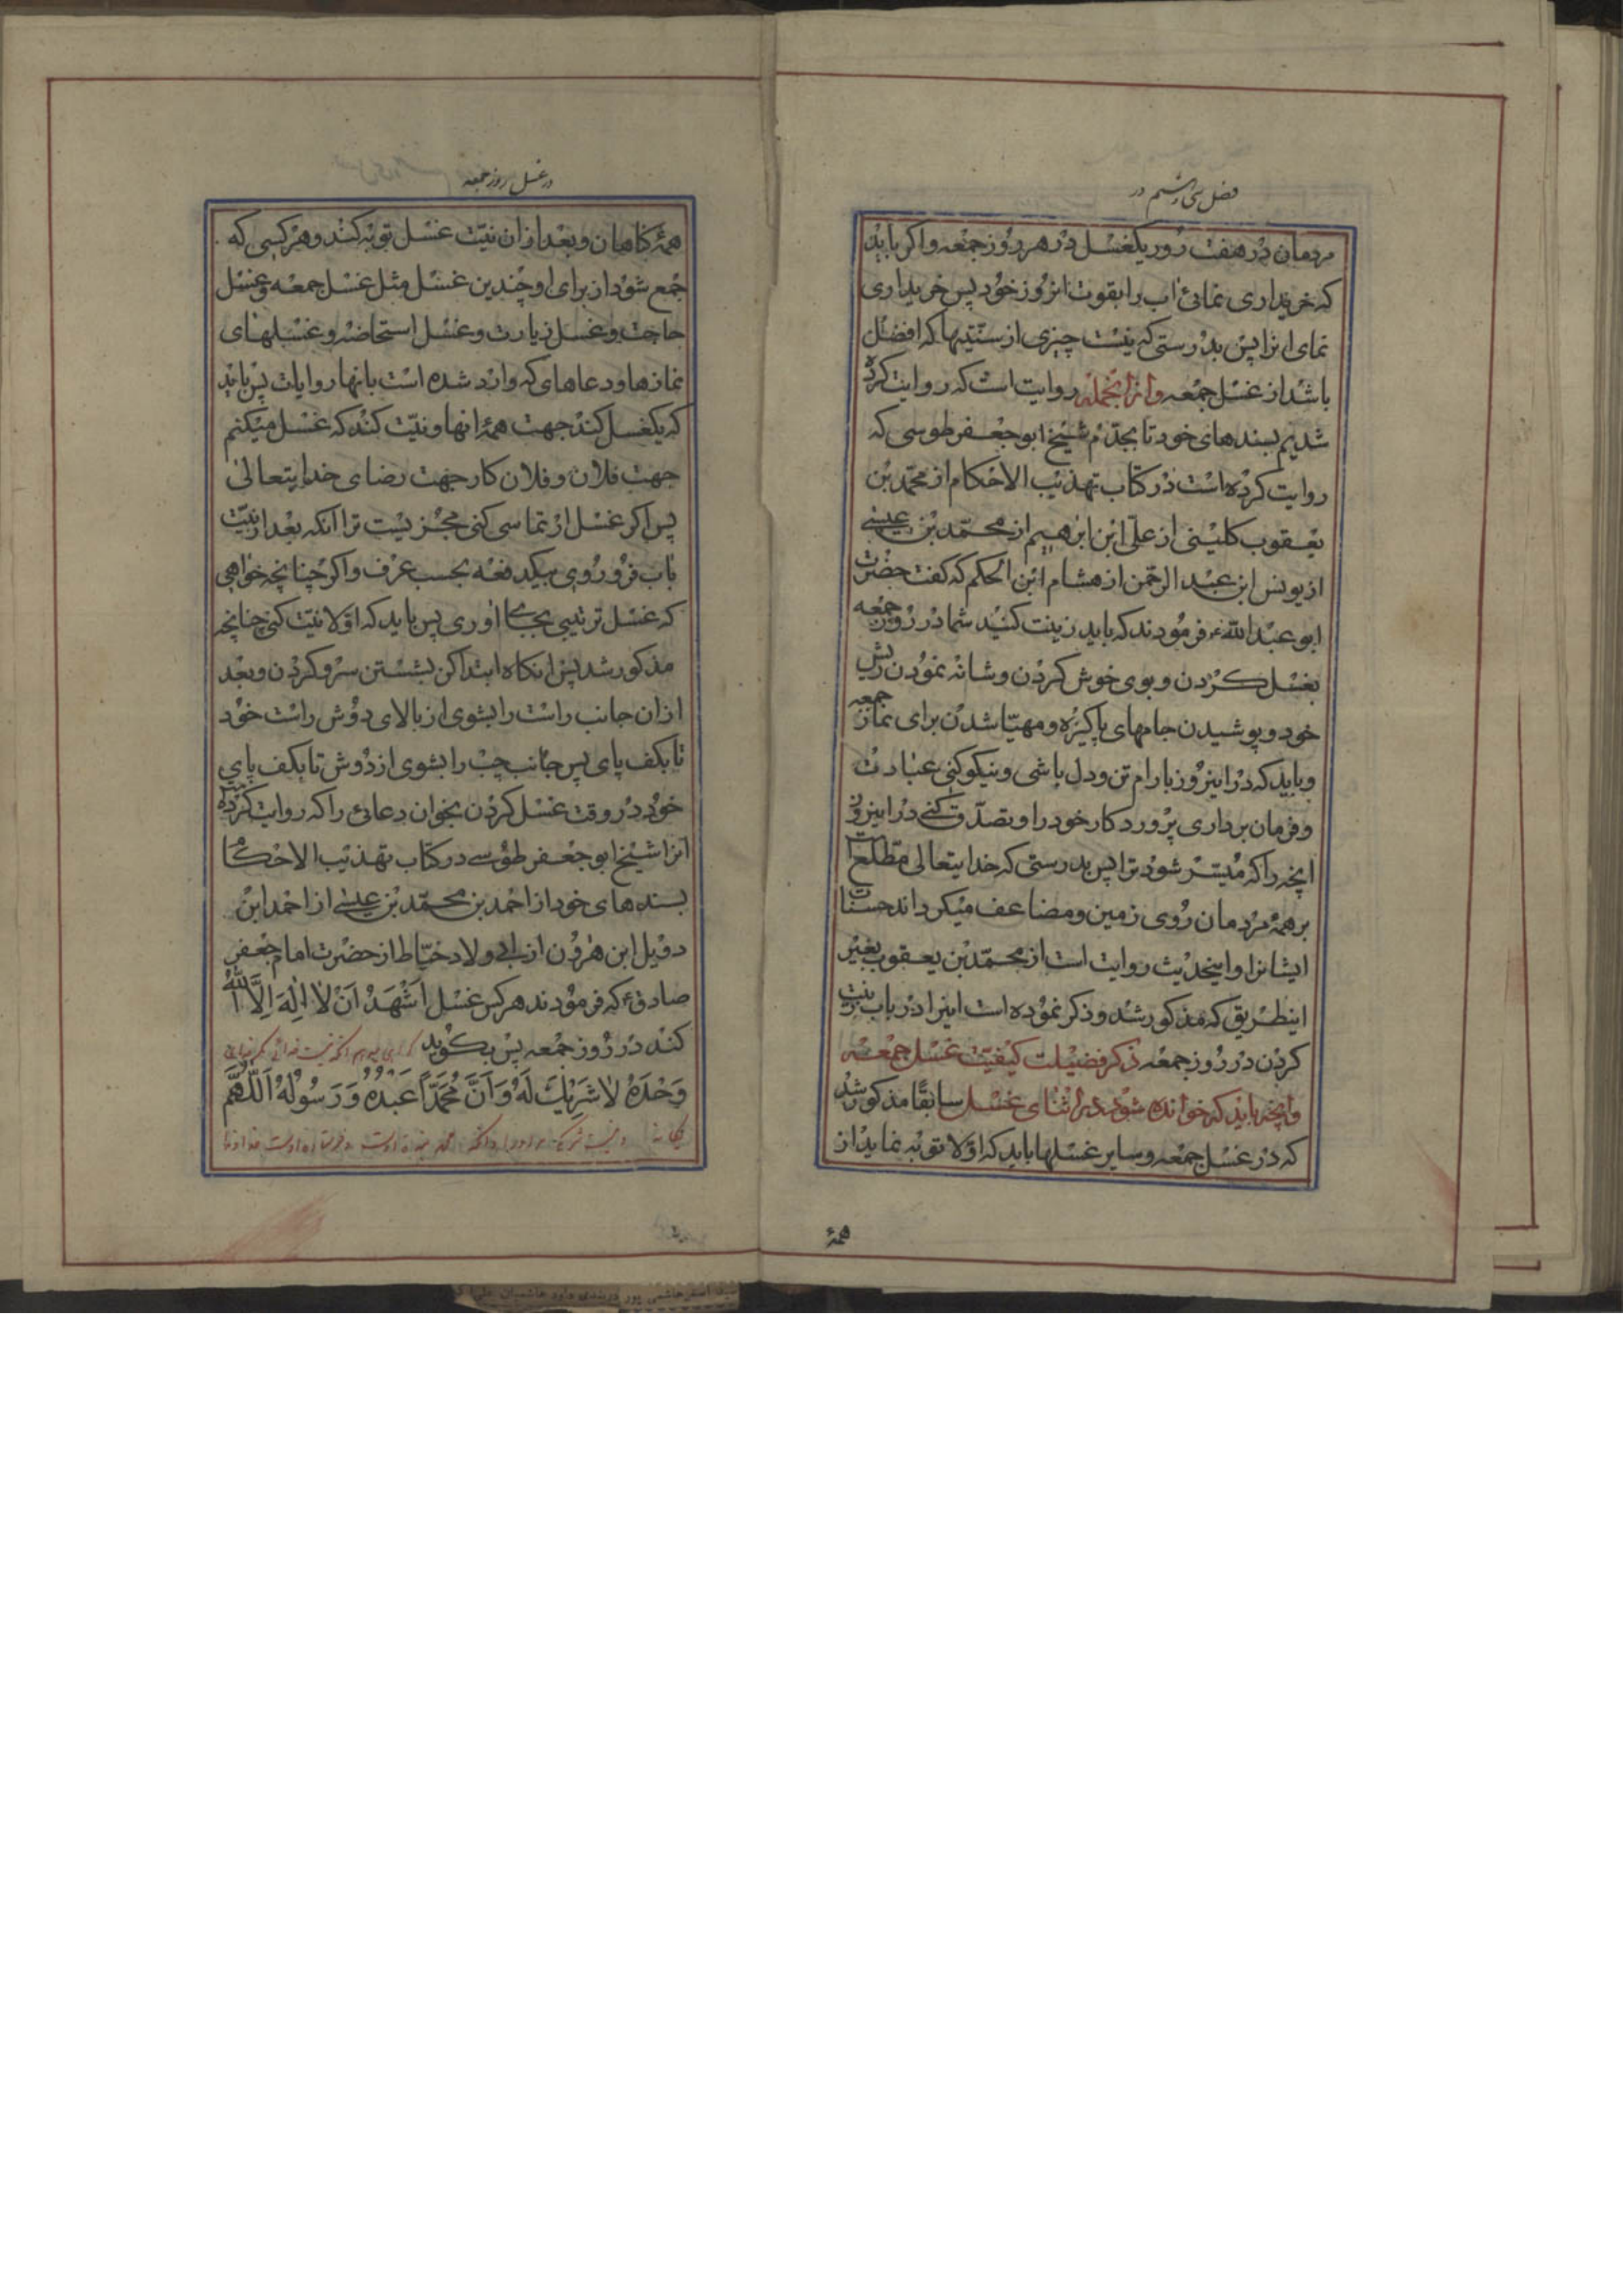 فصل سی و ششم در
مردمان در هفت روز یکغسل در هر روز جمعه و اکر باید
که خریداری نمائی اب را بقوت انروز خود پس خریداری
نمای انرا پس بدرستی که نیست چیزی از سنتیها که افضل
باشد از غسل جمعه وازانجمله روایت است که روایت کرده
شدیم بسندهای خود تا بجدم شیخ ابو جعفر طوسی که
روایت کرده است در کتاب تهذیب الاحکام از محمد بن
یعقوب کلینی از علی ابن ابرهیم از محمد بن عیسی
از یونس ابن عبد الرحمن از هشام ابن الحکم که کفت حضرت
ابو عبد الله ع فرمودند که باید زینت کنید شما در روز جمعه
بغسل کردن و بوی خوش کردن و شانه نمودن ریش
خود و پوشیدن جامهای پاکیزه و مهیا شدن برای نماز جمعه
و باید که در اینروز بارام تن و دل باشی و نیکو کنی عبادت
و فرمان برداری پروردکار خود را و تصدق کنی در اینروز
انچه را که میسر شود ترا پس بدرستی که خدایتعالی مطلع است
بر همهٔ مردمان روی زمین و مضاعف میکرداند حسنات
ایشانرا و اینحدیث روایت است از محمد بن یعقوب بغیر
اینطریق که مذکور شد و ذکر نموده است اینرا در باب زینت
کردن در روز جمعه ذکر فضیلت کیفیت غسل جمعه
وانچه باید که خوانده شود در اثنای غسل سابقا مذکور شد
که در غسل جمعه و سایر غسلها باید که اولا توبه نماید از
همهٔ
در غسل روز جمعه
همهٔ کناهان و بعد از ان نیت غسل توبه کند و هر کسی که
جمع شود از برای او چندین غسل مثل غسل جمعه و غسل
حاجت و غسل زیارت و غسل استحاضه و غسلهای
نمازها و دعاهای که وارد شده است بانها روایات پس باید
که یکغسل کند جهت همهٔ انها و نیت کند که غسل میکنم
جهت فلان و فلان کار جهت رضای خدایتعالی
پس اکر غسل ارتماسی کنی مجز یست ترا انکه بعد از نیت
باب فرو روی بیکدفعه بحسب عرف و اکر چنانچه خواهی
که غسل ترتیبی بجای اوری پس باید که اولا نیت کنی چنانچه
مذکور شد پس انکاه ابتدا کن بشستن سر و کردن و بعد
از ان جانب راست را بشوی از بالای دوش راست خود
تا بکف پای پس جانب چپ را بشوی از دوش تا بکف پای
خود در وقت غسل کردن بخوان دعائی را که روایت کرده است
انرا شیخ ابو جعفر طوسی در کتاب تهذیب الاحکام
بسندهای خود از احمد بن محمد بن عیسی از احمد ابن
دویل ابن هرون از ابی ولاد خیاط از حضرت امام جعفر
صادق ع که فرمودند هر کس غسل اَشْهَدُ اَنْ لا اِلٰهَ اِلَّا اللهُ
کند در روز جمعه پس بکوید
وَحْدَهُ لا شَرِيكَ لَهُ وَاَنَّ مُحَمَّداً عَبْدُهُ وَرَسُولُهُ اَللّٰهُمَّ